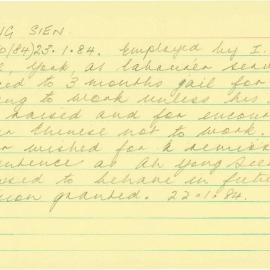 NG SIEN.
0/84) 23.1.84. Employed by I.
York, as labourer
to 3 months gail for
ng to work unless his
raised and for encour
Chinese not to work.
wished for a remiss
entence as Ah Yong Seen
ised to behave in future
ion granted. 22.1.84.